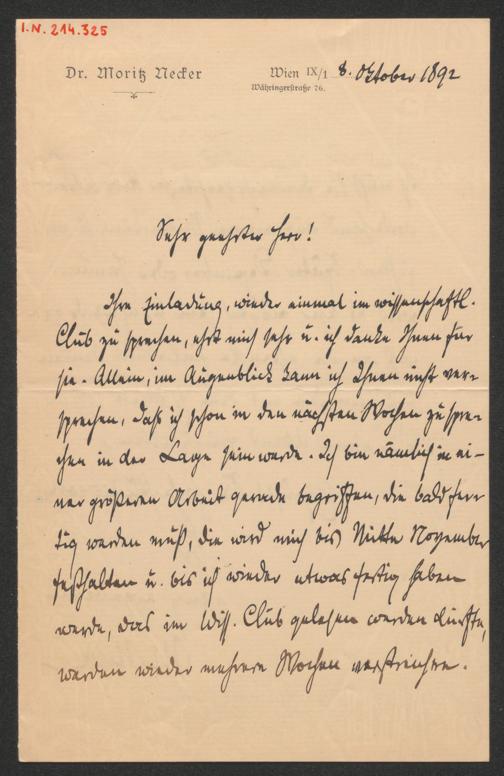 I.N. 214.325
Dr. Moritz Necker
Wien IX/1 8. Oktober 1892
Währingerstraße 76.
Sehr geehrter Herr!
Ihre Einladung, wieder einmal im wissenschaftl.
Club zu sprechen, ehrt mich sehr u. ich danke Ihnen für
sie. Allein, im Augenblick kann ich Ihnen nicht ver-
sprechen, daß ich schon in den nächsten Wochen zu spre-
chen in der Lage sein werde. Ich bin nämlich in ei-
ner größeren Arbeit gerade begriffen, die bald fer-
tig werden muß, die wird mich bis Mitte November
festhalten u. bis ich wieder etwas fertig haben
werde, das im Wiss. Club gelesen werden dürfte,
werden wieder mehrere Wochen verstreichen.